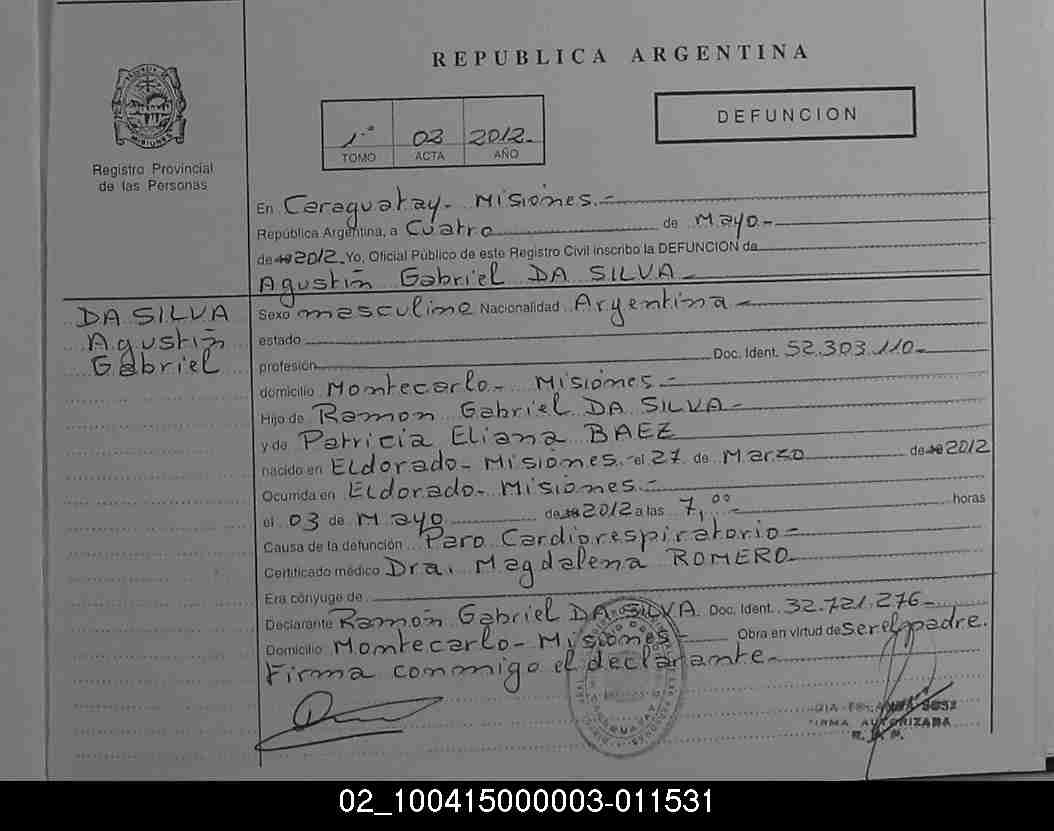 REPUBLICA ARGENTINA
DEFUNCION
1º 02 2012.-
TOMO ACTA AÑO
MISIONES
Registro Provincial
de las Personas
En Caraguatay- Misiones.-
República Argentina, a Cuatro de Mayo-
de 19 2012. Yo, Oficial Público de este Registro Civil inscribo la DEFUNCION de
Agustín Gabriel DA SILVA-
DA SILVA
Agustín
Gabriel
Sexo masculino Nacionalidad Argentina-
estado
profesión Doc. Ident. 52.303.110-
domicilio Montecarlo- Misiones-
Hijo de Ramon Gabriel DA SILVA-
y de Patricia Eliana BAEZ
nacido en Eldorado- Misiones.- el 27 de Marzo de 19 2012
Ocurrida en Eldorado- Misiones.-
el 03 de Mayo de 19 2012 a las 7,00- horas
Causa de la defunción Paro Cardiorespiratorio-
Certificado médico Dra. Magdalena ROMERO-
Era cónyuge de
Declarante Ramón Gabriel DA SILVA. Doc. Ident. 32.721.276-
Domicilio Montecarlo- Misiones- Obra en virtud de ser el padre.
Firma conmigo el declarante-
FIRMA AUTORIZADA
02_100415000003-011531